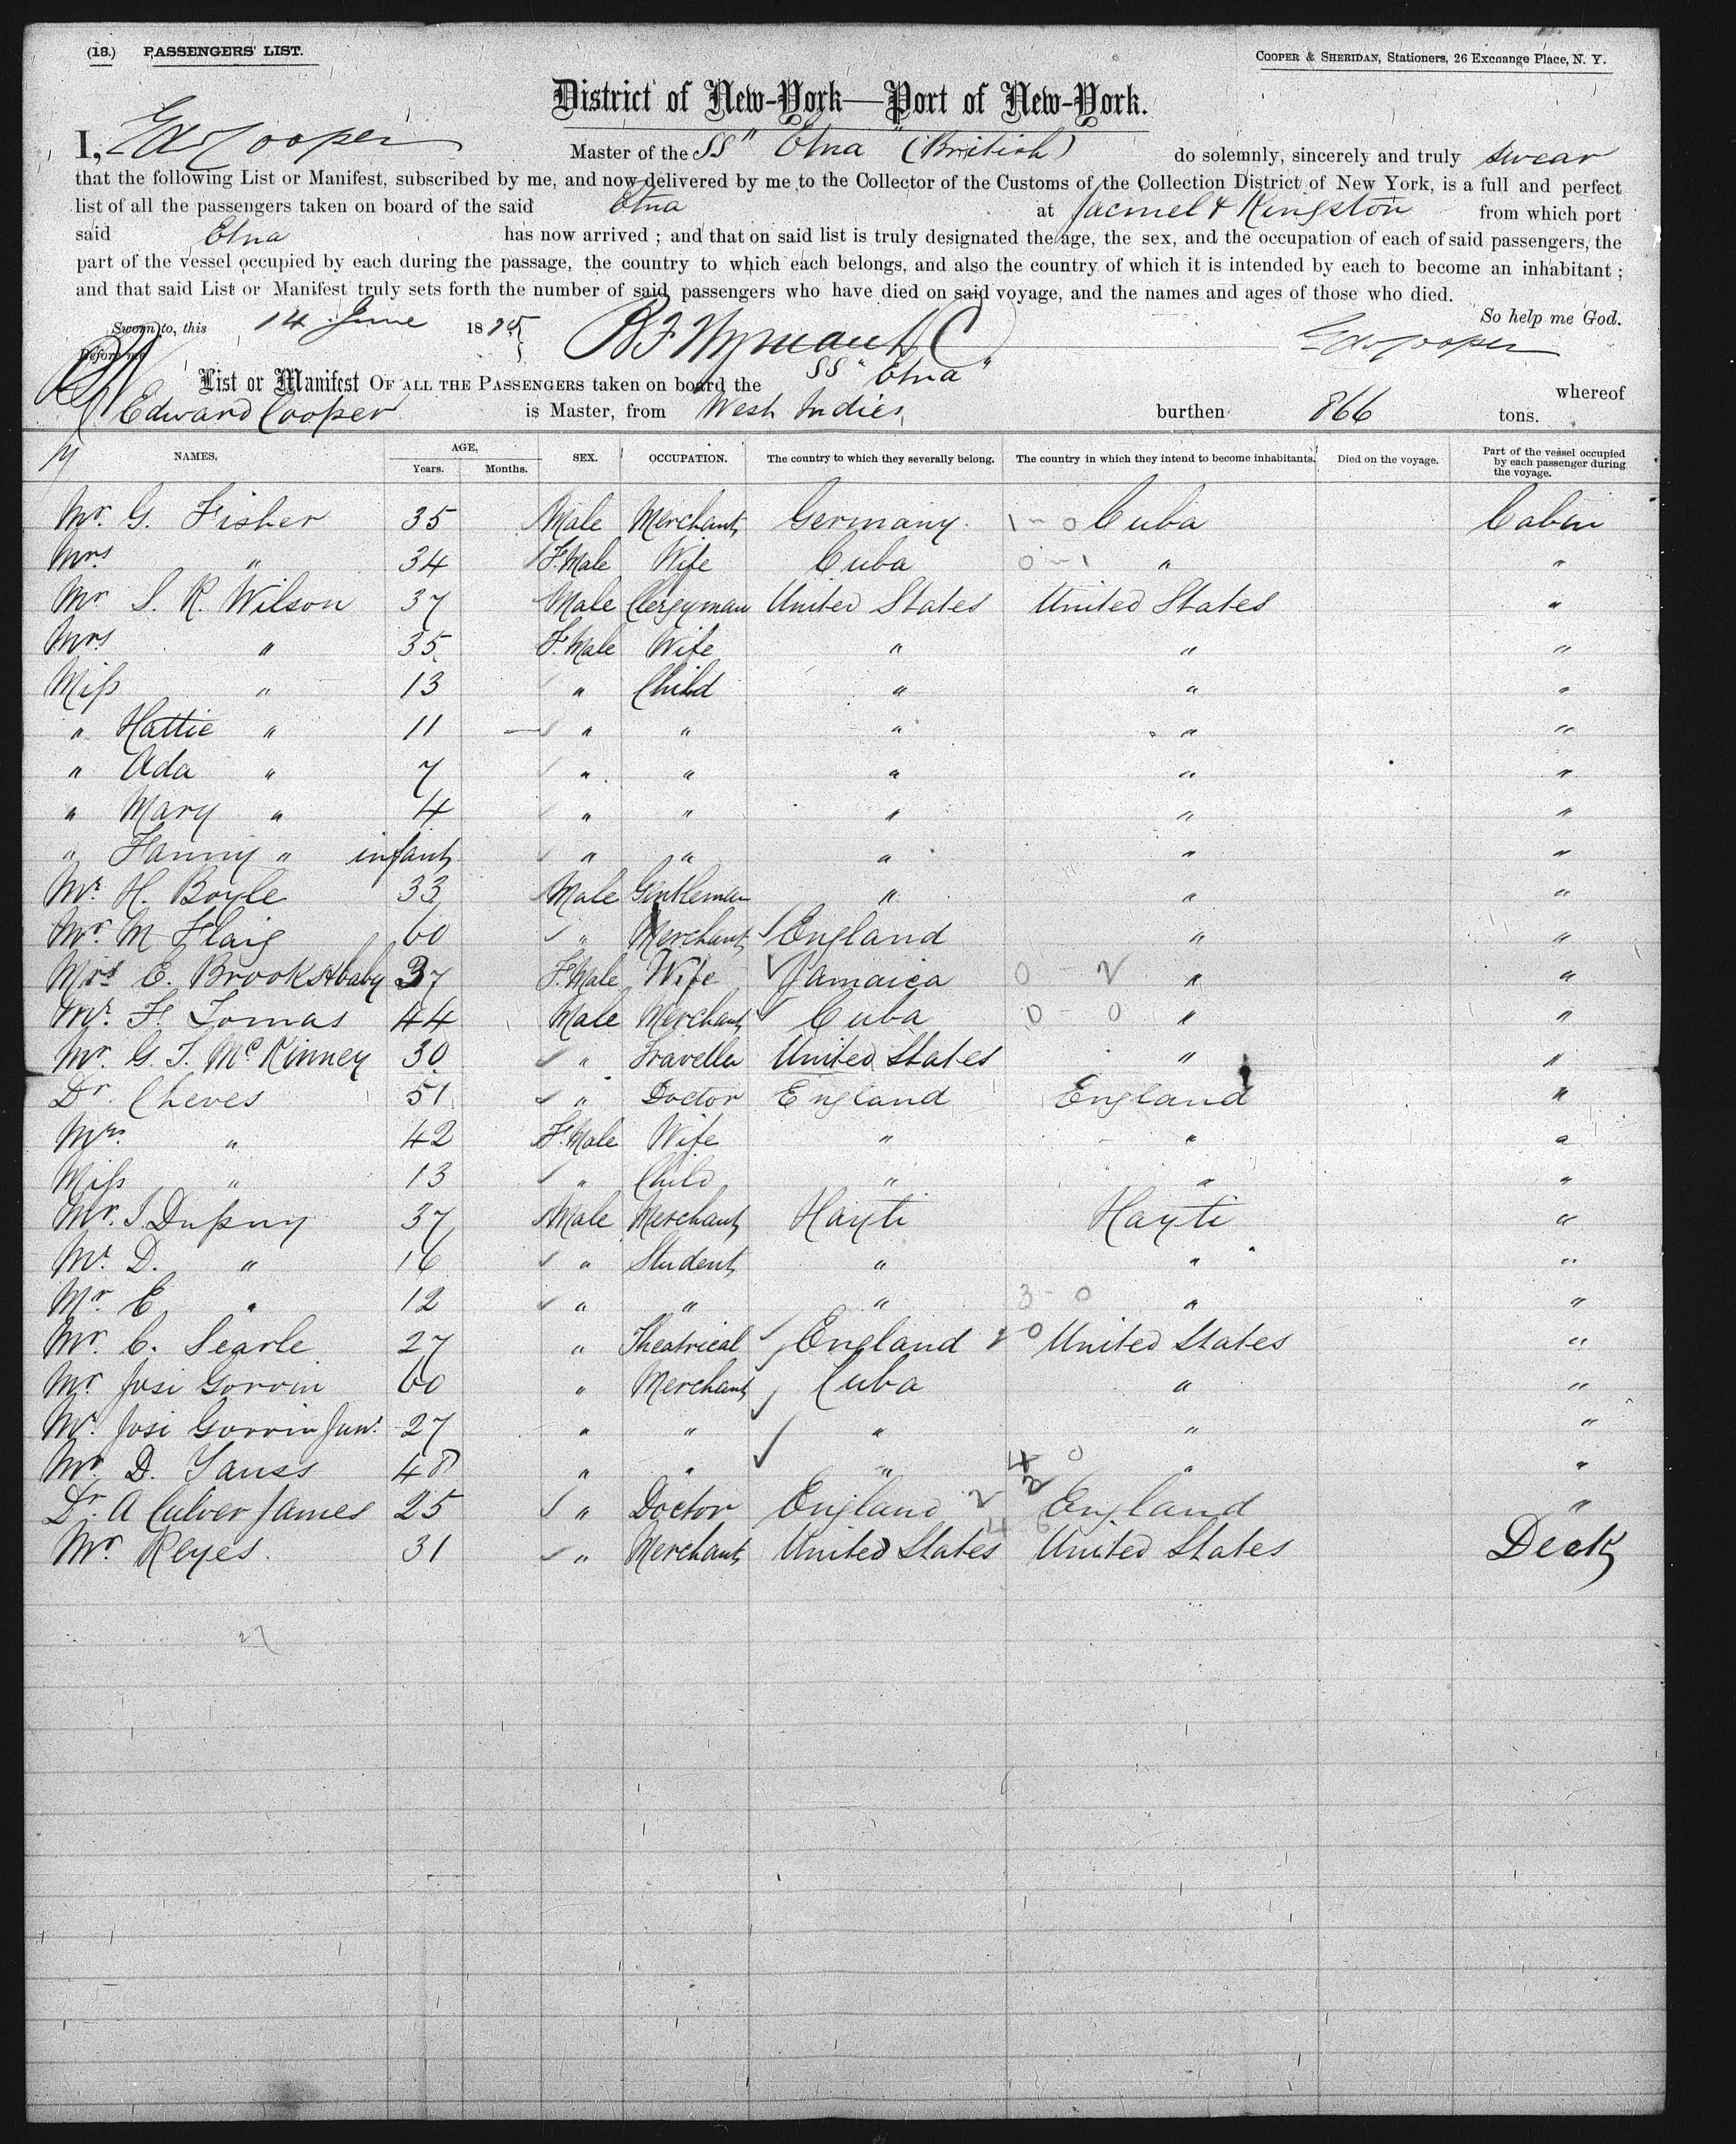 (18.) PASSENGERS' LIST.
COOPER & SHERIDAN, Stationers, 26 Exchange Place, N. Y.
District of New-York—Port of New-York.
I, Ed Cooper Master of the SS "Etna" (British) do solemnly, sincerely and truly swear
that the following List or Manifest, subscribed by me, and now delivered by me to the Collector of the Customs of the Collection District of New York, is a full and perfect
list of all the passengers taken on board of the said Etna at Jacmel & Kingston from which port
said Etna has now arrived ; and that on said list is truly designated the age, the sex, and the occupation of each of said passengers, the
part of the vessel occupied by each during the passage, the country to which each belongs, and also the country of which it is intended by each to become an inhabitant ;
and that said List or Manifest truly sets forth the number of said passengers who have died on said voyage, and the names and ages of those who died.
So help me God.
Sworn to, this 14 June 1875
Before me
Ed Cooper
List or Manifest OF ALL THE PASSENGERS taken on board the SS "Etna" whereof
Edward Cooper is Master, from West Indies burthen 866 tons.
NAMES. AGE. Years. Months. SEX. OCCUPATION. The country to which they severally belong. The country in which they intend to become inhabitants. Died on the voyage. Part of the vessel occupied by each passenger during the voyage.
Mr. G. Fisher 35 Male Merchant Germany 1-0 Cuba Cabin
Mrs " 34 F.Male Wife Cuba 0-1 " "
Mr S. R. Wilson 37 Male Clergyman United States United States "
Mrs " 35 F.Male Wife " " "
Miss " 13 " Child " " "
" Hattie " 11 — " " " " "
" Ada " 7 " " " " "
" Mary " 4 " " " " "
" Fanny " infant " " " " "
Mr. H. Boyle 33 Male Gentleman " " "
Mr. M Flaig 60 " Merchant England " "
Mrs E. Brooks & baby 37 F.Male Wife Jamaica 0 - 2 " "
Mr. F. Tomas 44 Male Merchant Cuba 0 - 0 " "
Mr. G. T. McKinney 30 " Traveller United States " "
Dr. Cheves 51 " Doctor England England "
Mrs. " 42 F.Male Wife " " "
Miss " 13 " Child " " "
Mr. S. Dupuy 37 Male Merchant Hayti Hayti "
Mr. D. " 16 " Student " " "
Mr E " 12 " " " 3-0 " "
Mr. C. Searle 27 " Theatrical England 2-0 United States "
Mr Josi Gorvin 60 " Merchant Cuba " "
Mr. Josi Gorvin Junr. 27 " " " " "
Mr D. Sauss 48 " " " 4 0 " "
Dr. A Culver James 25 " Doctor England 2 2 England "
Mr Reyes. 31 " Merchant United States 4 6 United States Deck
27